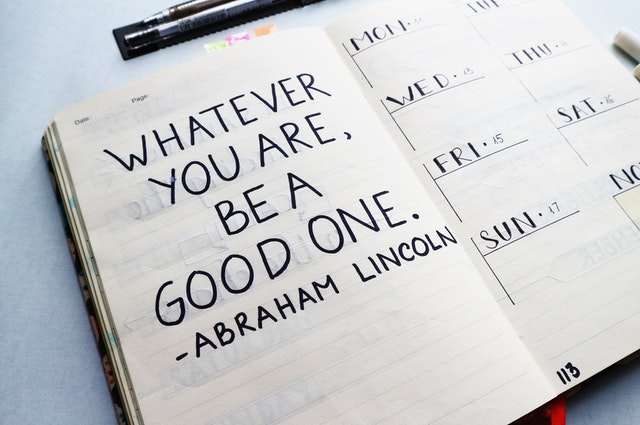 Date:
Page:
WHATEVER
YOU ARE,
BE A
GOOD ONE.
-ABRAHAM LINCOLN
MON. 11
TUE
WED. 13
THU.
FRI. 15
SAT. 16
SUN. 17
NO
113